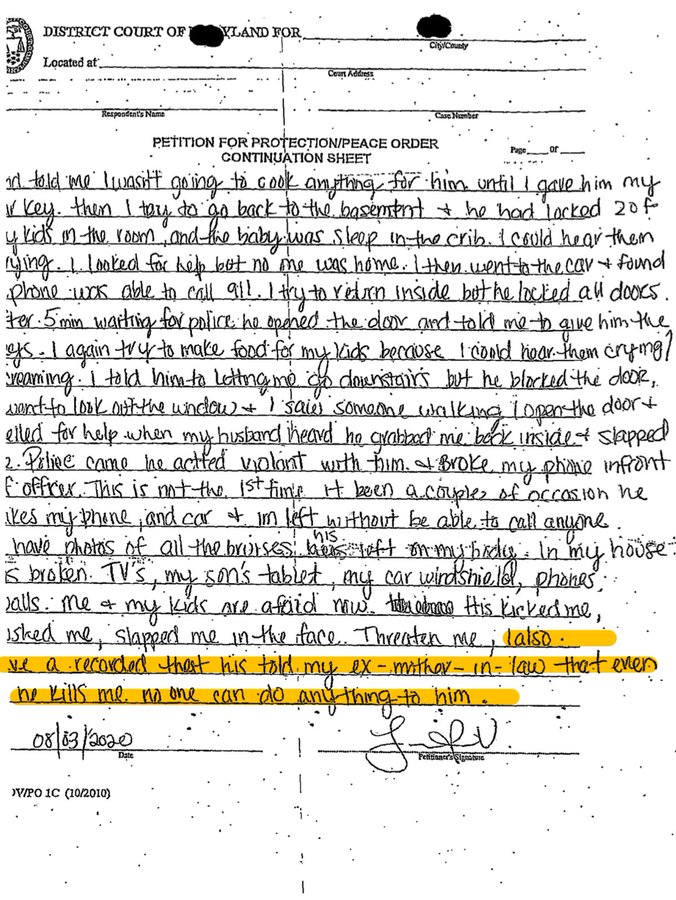 DISTRICT COURT OF YLAND FOR
City/County
Located at
Court Address
Respondent's Name
Case Number
PETITION FOR PROTECTION/PEACE ORDER
CONTINUATION SHEET
Page of
nd told me I wasn't going to cook anything for him until I gave him my
r key. then I try to go back to the basement + he had locked 2 of
y kids in the room, and the baby was sleep in the crib. I could hear them
rying. I looked for help but no one was home. I then went to the car + found
phone was able to call 911. I try to return inside but he locked all doors.
ter 5 min waiting for police he opened the door and told me to give him the
eys. I again try to make food for my kids because I could hear them crying/
reaming. I told him to letting me go downstairs but he blocked the door,
went to look out the window + I saw someone walking I open the door +
elled for help when my husband heard he grabbed me back inside + slapped
e. Police came he actted violent with him + Broke my phone infront
f officer. This is not the 1st time it been a couples of occasion he
akes my phone, and car + im left without be able to call anyone.
have photos of all the bruises his left on my body. In my house
is broken. TV's, my son's tablet, my car windshield, phones
walls. Me + my kids are afraid now. His kicked me,
ushed me, slapped me in the face. Threaten me, I also
ve a recorded that his told my ex-mother-in-law that even
he kills me no one can do anything to him.
08/03/2020
Date
Petitioner's Signature
DV/PO 1C (10/2010)